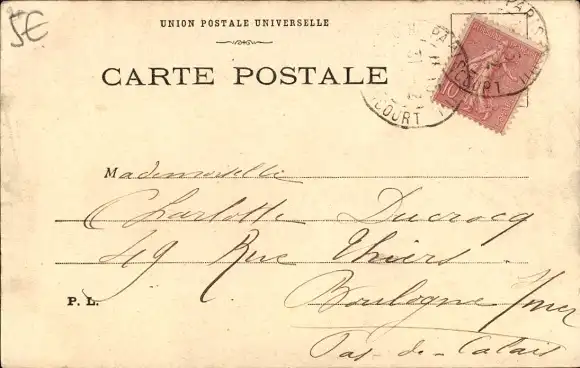 5€
UNION POSTALE UNIVERSELLE
CARTE POSTALE
10
COURT
COURT
PARIS
Mademoiselle
Charlotte Ducrocq
49 Rue Thiers
P. L.
Boulogne s/mer
Pas-de-Calais